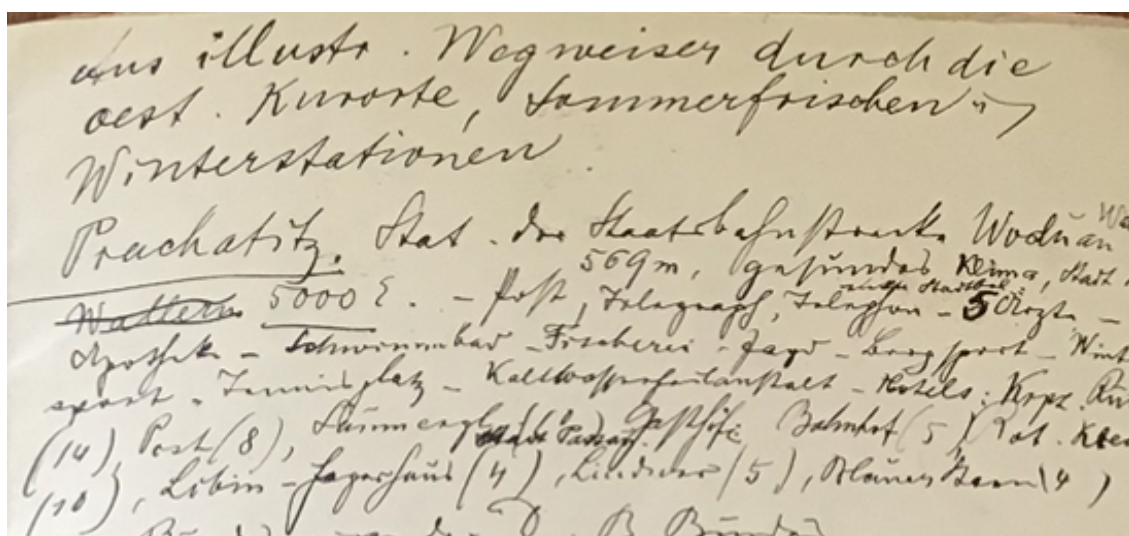 Aus illustr. Wegweiser durch die
oest. Kurorte, Sommerfrischen u
Winterstationen.
Prachatitz. Stat. der Staatsbahnstrecke Wodňan
569 m, gesundes Klima, Stadt
Wallern 5000 E. - Post, Telegraph, Telephon - 5 Ärzte -
Apotheke - Schwimmbad - Fischerei - Jagd - Bergsport - Wint
sport - Tennisplatz - Kaltwasserheilanstalt - Hotels: Kropf.
(14), Post (8), Stadt Passau. Gasthöfe: Bahnhof (5) Rot.
(10), Libin-Jägerhaus (4), Lindner (5), Blauer Stern (4)